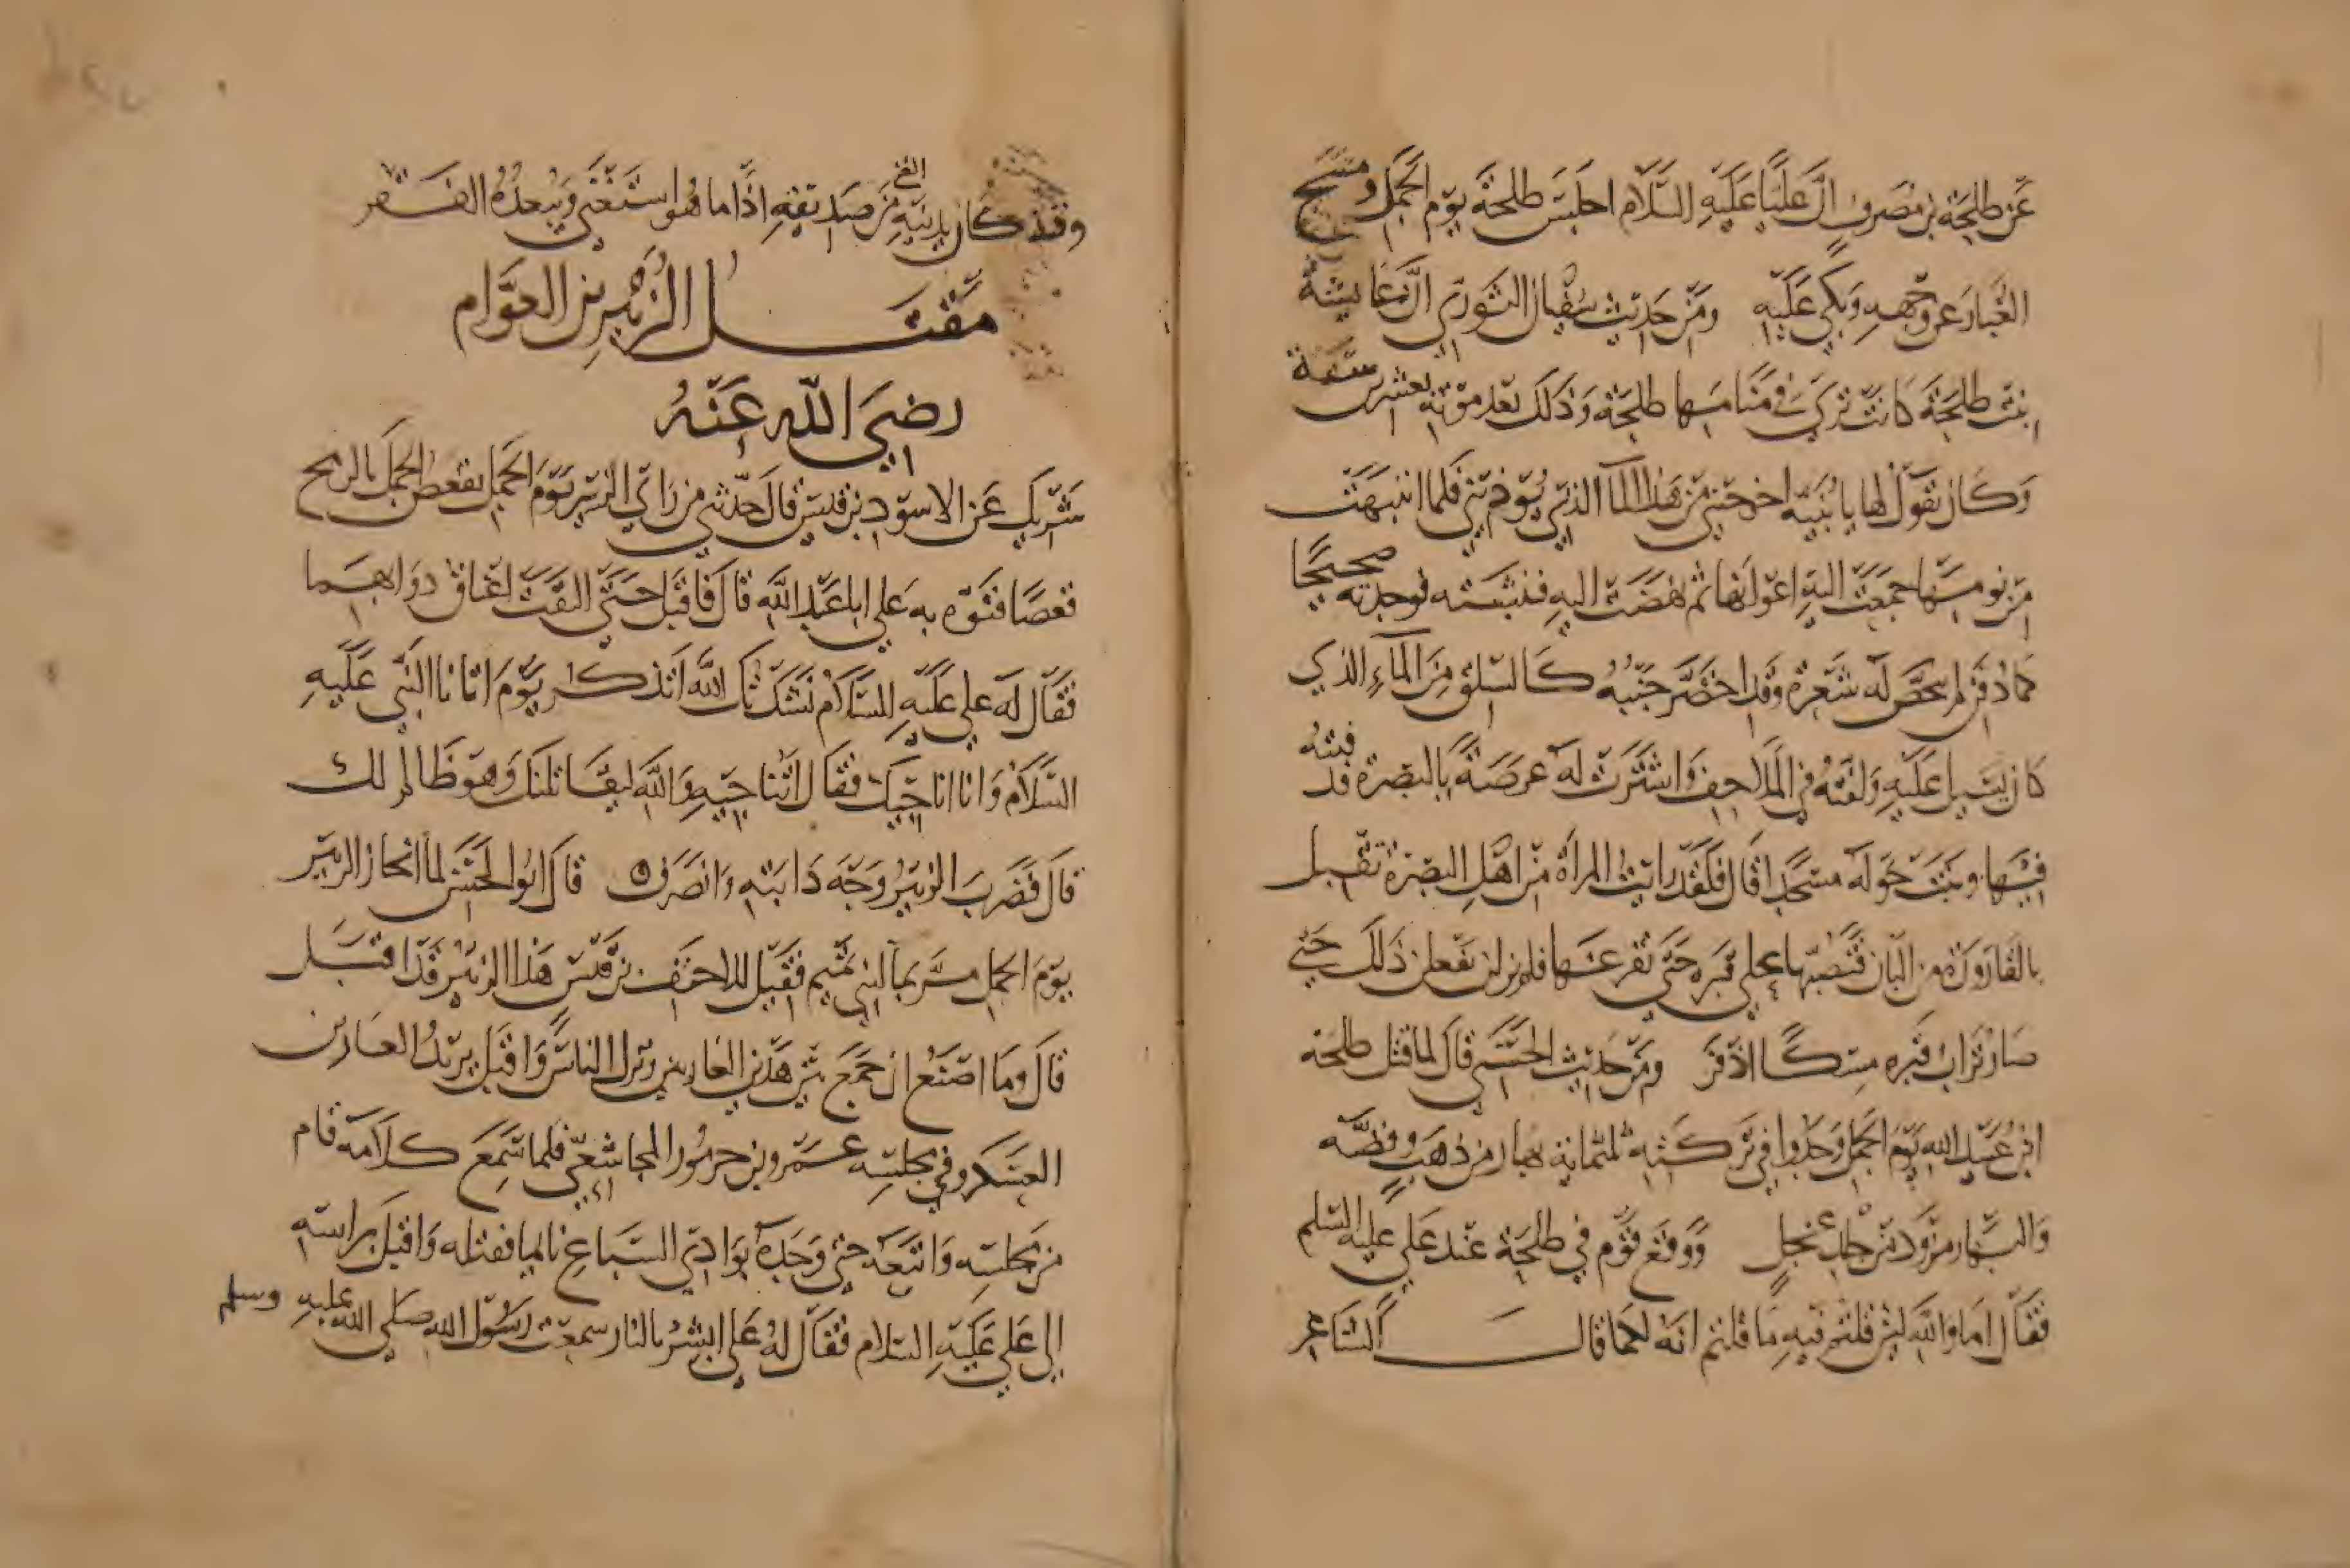 عن طلحة بن مصرف ان عليا عليه السلام اجلس طلحة يوم الجمل ومسح
الغبار عن وجهه وبكى عليه ومن حديث سفيان الثوري ان عايشة
ابنت طلحة كانت ترى في منامها طلحة وذلك بعد موته بعشرين سنة
وكان يقول لها يا بنيه اخرجيني من هذا الماء الذي يوذيني فلما انتبهت
من نومها جمعت اليه اعوانها ثم نهضت اليه فنبشته فوجدته صحيحا
كما دفن لم ينحص له شعرة وقد اخضر جنبه كالسلق من الماء الذي
كان يسيل عليه ولفته في الملاحف واشترت له عرصة بالبصرة فدفنته
فيها وبنت حوله مسجدا قال فلقد رايت المراة من اهل البصرة تقبل
بالقارورة من البان فتصبها على قبره حتى تفرغها فلم يزلن يفعلن ذلك حتى
صار تراب قبره مسكا اذفر ومن حديث الخشني قال لما قتل طلحة
ابن عبيد الله يوم الجمل وجدوا في تركته ثلثماية بهار من ذهب وفضة
والبهار مزود من جلد عجل ووقع قوم في طلحة عند علي عليه السلم
فقال اما والله لين قلتم فيه ما قلتم انه لكما قال الشاعر
وقد كان يدنيه الغنى من صديقه اذا ما هو استغنى ويبعده الفقر
مقتل الزبير بن العوام
رضي الله عنه
شريك عن الاسود بن قيس قال حدثني من راى الزبير يوم الجمل يقعص الخيل بالرمح
قعصا فنوه به علي ابا عبد الله قال فاقبل حتى التقت اعناق دوابهما
فقال له علي عليه السلام نشدتك الله اتذكر يوم اتانا النبي عليه
السلام وانا اناجيك فقال اتناجيه والله ليقاتلنك وهو ظالم لك
قال فضرب الزبير وجه دابته وانصرف قال ابو الحسن لما انحاز الزبير
يوم الجمل مر بماء لبني تميم فقيل للاحنف بن قيس هذا الزبير قد اقبل
قال وما اصنع ان جمع بين هذين الغارين وترك الناس واقبل يريد العارين
العسكر وفي مجلسه عمرو بن جرموز المجاشعي فلما سمع كلامه قام
من مجلسه واتبعه حتى وجده بوادي السباع نايما فقتله واقبل براسه
الى علي عليه السلام فقال له علي ابشر بالنار سمعت رسول الله صلى الله عليه وسلم